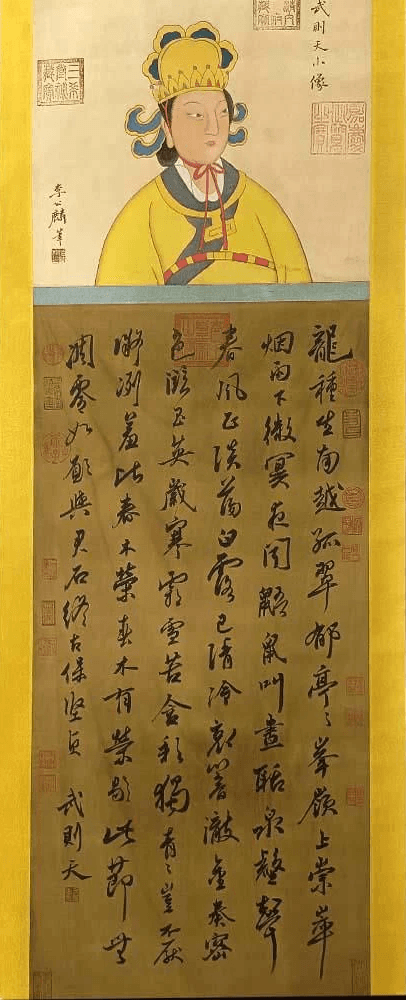 武則天小像
李公麟筆
龍種生南越孤翠郁亭〻峯嶺上崇崒
烟雨下微冥夜聞鼯鼠叫晝聒泉壑聲
春風正淡蕩白露已清泠哀響激金奏密
色滋玉英歲寒霜雪苦含彩獨青〻豈不厭
凝冽羞比春木榮春木有榮歇此節無
凋零如願與君石終古保堅貞 武則天